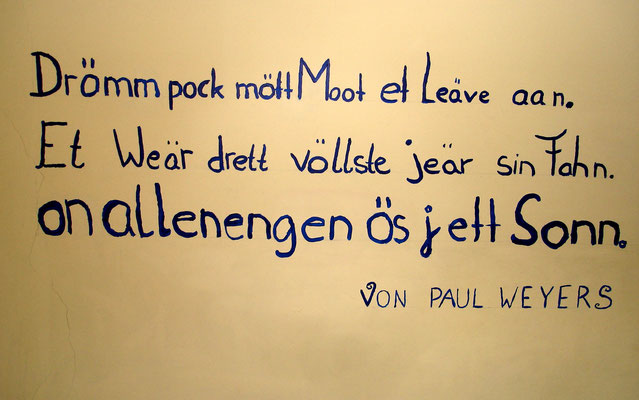 Drömm pock mött Moot et Leäve aan.
Et Weär drett völlste jeär sin Fahn.
on allenengen ös jett Sonn.
VON PAUL WEYERS